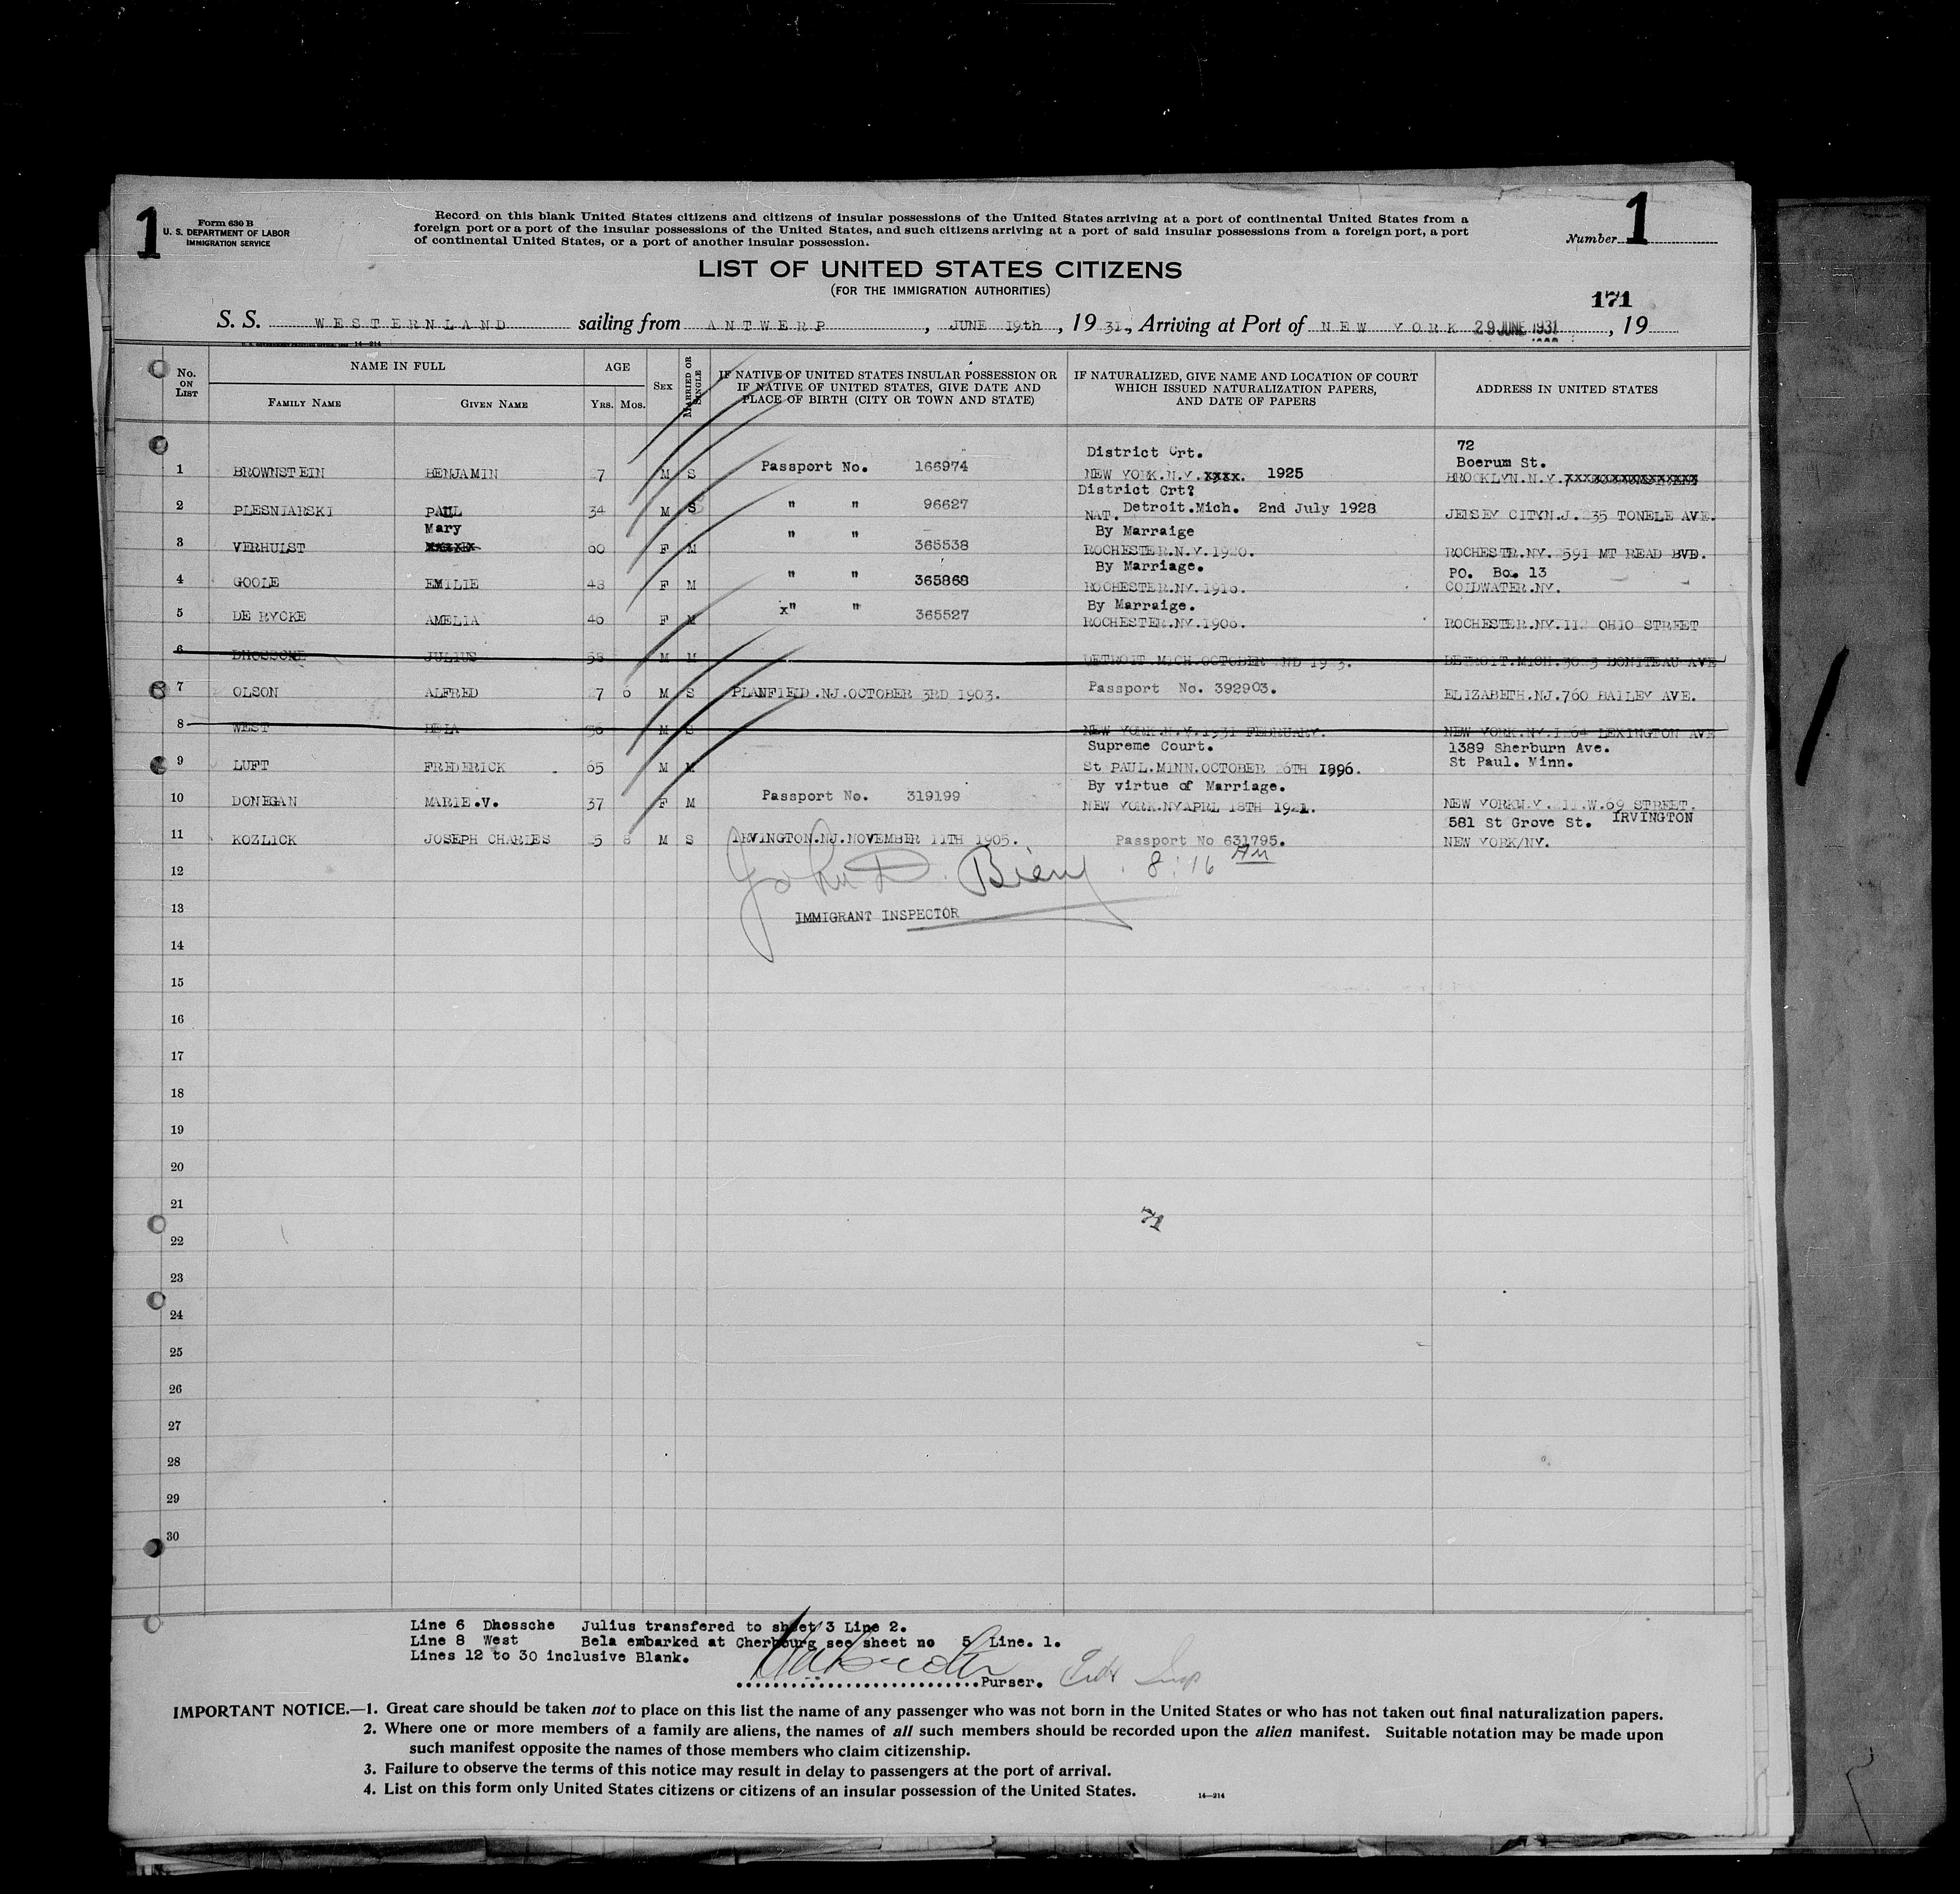 1
Form 630 B
U. S. DEPARTMENT OF LABOR
IMMIGRATION SERVICE
Record on this blank United States citizens and citizens of insular possessions of the United States arriving at a port of continental United States from a
foreign port or a port of the insular possessions of the United States, and such citizens arriving at a port of said insular possessions from a foreign port, a port
of continental United States, or a port of another insular possession.
Number 1
LIST OF UNITED STATES CITIZENS
(FOR THE IMMIGRATION AUTHORITIES)
171
S. S. WESTERNLAND sailing from ANTWERP, JUNE 19th, 1931, Arriving at Port of NEW YORK 29 JUNE 1931, 19
No. ON LIST
NAME IN FULL
FAMILY NAME
GIVEN NAME
AGE
YRS. MOS.
SEX
MARRIED OR SINGLE
IF NATIVE OF UNITED STATES INSULAR POSSESSION OR
IF NATIVE OF UNITED STATES, GIVE DATE AND
PLACE OF BIRTH (CITY OR TOWN AND STATE)
IF NATURALIZED, GIVE NAME AND LOCATION OF COURT
WHICH ISSUED NATURALIZATION PAPERS,
AND DATE OF PAPERS
ADDRESS IN UNITED STATES
District Crt. 72
Boerum St.
1 BROWNSTEIN BENJAMIN 7 M S Passport No. 166974 NEW YORK.N.Y. xxxx. 1925 BROOKLYN.N.Y.
District Crt?
2 PLESNIARSKI PAUL 34 M S " " 96627 NAT. Detroit.Mich. 2nd July 1928 JERSEY CITYN.J. 35 TONELE AVE.
Mary By Marraige
3 VERHULST 60 F M " " 365538 ROCHESTER.N.Y.1920. ROCHESTR.NY. 591 MT READ BVD.
By Marriage. PO. Box 13
4 GOOLE EMILIE 48 F M " " 365868 ROCHESTER.NY.1916. COLDWATER.NY.
By Marraige.
5 DE RYCKE AMELIA 46 F M x" " 365527 ROCHESTER.NY.1906. ROCHESTER.NY.112 OHIO STREET
6 DHOSSCHE JULIUS 58 M M DETROIT.MICH.OCTOBER DETROIT.MICH. BONITEAU AVE
7 OLSON ALFRED 27 6 M S PLANFIELD.NJ.OCTOBER 3RD 1903. Passport No. 392903. ELIZABETH.NJ.760 BAILEY AVE.
8 WEST BELA 36 M S NEW YORK.N.Y.1931 FEBRUARY. NEW YORK.NY. LEXINGTON AVE
Supreme Court. 1389 Sherburn Ave.
9 LUFT FREDERICK 65 M M St PAUL.MINN.OCTOBER 26TH 1896. St Paul. Minn.
By virtue of Marriage.
10 DONEGAN MARIE.V. 37 F M Passport No. 319199 NEW YORK.NYAPRL 18TH 1921. NEW YORKN.Y. 211.W.69 STREET.
581 St Grove St. IRVINGTON
11 KOZLICK JOSEPH CHARLES 25 8 M S IRVINGTON.NJ.NOVEMBER 11TH 1905. Passport No 631795. NEW YORK/NY.
12 John D. 8:16 AM
13 IMMIGRANT INSPECTOR
14
15
16
17
18
19
20
21 71
22
23
24
25
26
27
28
29
30
Line 6 Dhossche Julius transfered to sheet 3 Line 2.
Line 8 West Bela embarked at Cherbourg see sheet no 5 Line. 1.
Lines 12 to 30 inclusive Blank.
Purser.
IMPORTANT NOTICE.—1. Great care should be taken not to place on this list the name of any passenger who was not born in the United States or who has not taken out final naturalization papers.
2. Where one or more members of a family are aliens, the names of all such members should be recorded upon the alien manifest. Suitable notation may be made upon
such manifest opposite the names of those members who claim citizenship.
3. Failure to observe the terms of this notice may result in delay to passengers at the port of arrival.
4. List on this form only United States citizens or citizens of an insular possession of the United States.
14—214